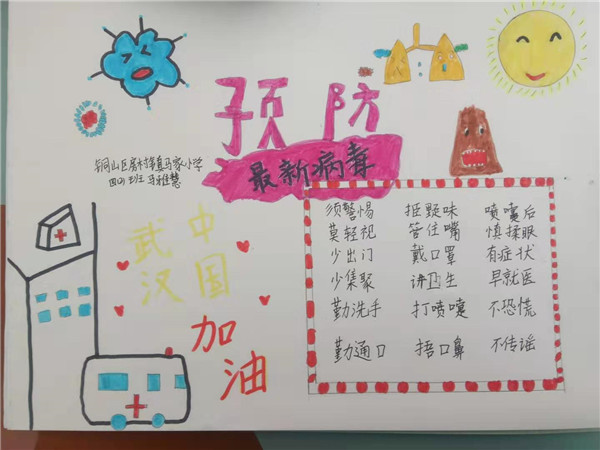 预防
最新病毒
铜山区房村镇马家小学
四(4)班 马雅慧
武汉
中国
加油
须警惕 拒野味 喷嚏后
莫轻视 管住嘴 慎揉眼
少出门 戴口罩 有症状
少集聚 讲卫生 早就医
勤洗手 打喷嚏 不恐慌
勤通口 捂口鼻 不传谣